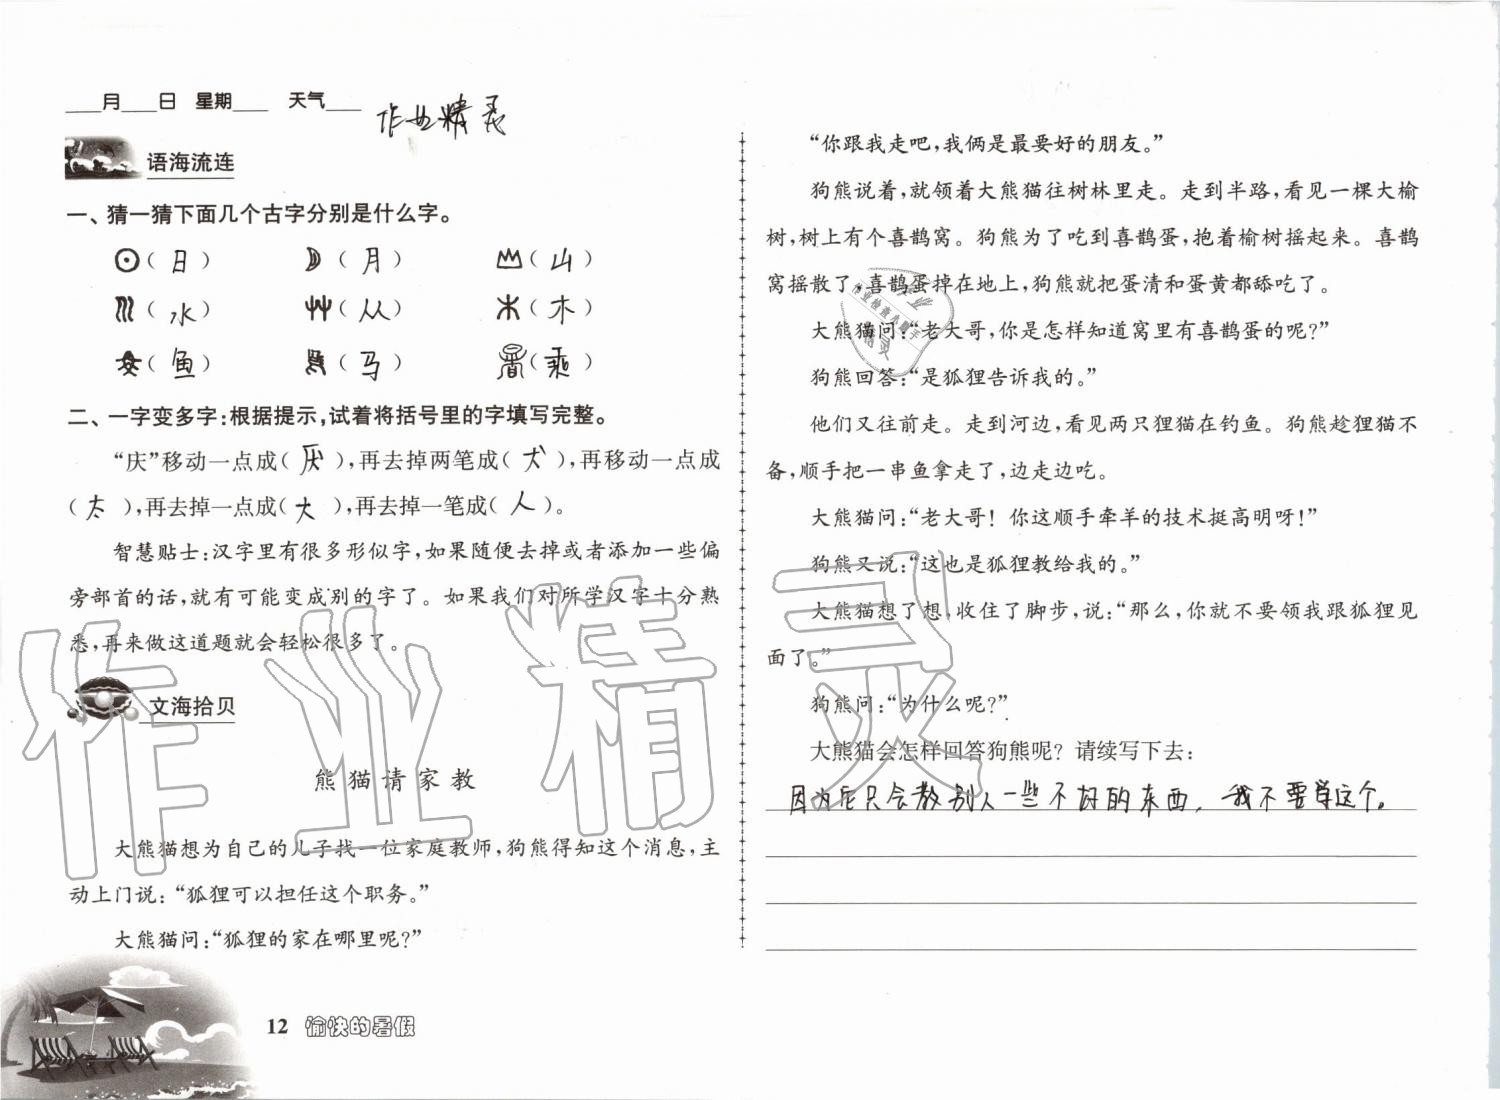 ___月___日 星期___ 天气___ 作业精灵
语海流连
一、猜一猜下面几个古字分别是什么字。
(日) (月) (山)
(水) (从) (木)
(鱼) (马) (乘)
二、一字变多字:根据提示,试着将括号里的字填写完整。
“庆”移动一点成(厌),再去掉两笔成(犬),再移动一点成
(太),再去掉一点成(大),再去掉一笔成(人)。
智慧贴士:汉字里有很多形似字,如果随便去掉或者添加一些偏
旁部首的话,就有可能变成别的字了。如果我们对所学汉字十分熟
悉,再来做这道题就会轻松很多了。
文海拾贝
熊猫请家教
大熊猫想为自己的儿子找一位家庭教师,狗熊得知这个消息,主
动上门说:“狐狸可以担任这个职务。”
大熊猫问:“狐狸的家在哪里呢?”
12 愉快的暑假
“你跟我走吧,我俩是最要好的朋友。”
狗熊说着,就领着大熊猫往树林里走。走到半路,看见一棵大榆
树,树上有个喜鹊窝。狗熊为了吃到喜鹊蛋,抱着榆树摇起来。喜鹊
窝摇散了,喜鹊蛋掉在地上,狗熊就把蛋清和蛋黄都舔吃了。
大熊猫问:“老大哥,你是怎样知道窝里有喜鹊蛋的呢?”
狗熊回答:“是狐狸告诉我的。”
他们又往前走。走到河边,看见两只狸猫在钓鱼。狗熊趁狸猫不
备,顺手把一串鱼拿走了,边走边吃。
大熊猫问:“老大哥!你这顺手牵羊的技术挺高明呀!”
狗熊又说:“这也是狐狸教给我的。”
大熊猫想了想,收住了脚步,说:“那么,你就不要领我跟狐狸见
面了。”
狗熊问:“为什么呢?”
大熊猫会怎样回答狗熊呢?请续写下去:
因为它只会教别人一些不好的东西,我不要学这个。
作业精灵